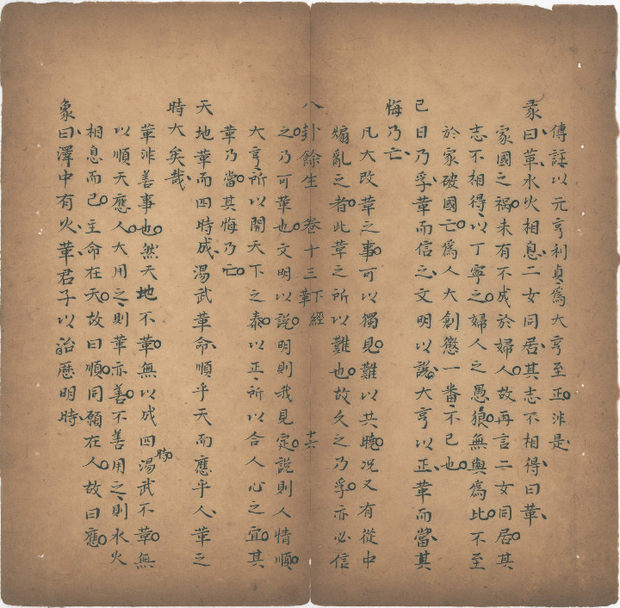 傳註以元亨利貞為大亨至正非是
彖曰革水火相息二女同居其志不相得曰革
家國之禍未有不成於婦人故再言二女同居其
志不相得以丁寧之婦人之愚狠無與為比不至
於家破國亡為人大創懲一番不已也
已日乃孚革而信之文明以說大亨以正革而當其
悔乃亡
凡大改革之事可以獨見難以共曉况又有從中
煽亂之者此革之所以難也故久之乃孚亦必信
八卦餘生 卷十三 下經 革 十六
之乃可革也文明以說明則我見定說則人情順
大亨所以開天下之泰以正所以合人心之宜其
革乃當其悔乃亡
天地革而四時成湯武革命順乎天而應乎人革之
時大矣哉
革非善事也然天地不革無以成四時湯武不革無
以順天應人大用之則革亦善不善用之則水火
相息而已主命在天故曰順同願在人故曰應
象曰澤中有火革君子以治歷明時